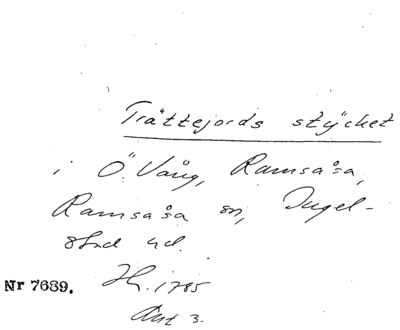 Trättejords stycket
i Ö. Vång, Ramsåsa,
Ramsåsa sn, Ingel-
stad hd.
Nr 7689. Hh. 1785
Akt 3.